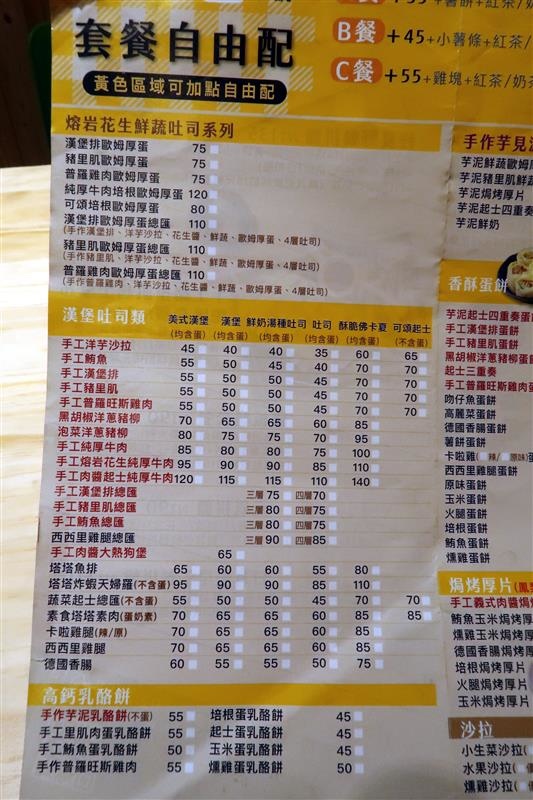 套餐自由配
黃色區域可加點自由配
B餐 +45+小薯條+紅茶/
C餐 +55+雞塊+紅茶/奶茶
熔岩花生鮮蔬吐司系列
漢堡排歐姆厚蛋 75
豬里肌歐姆厚蛋 75
普羅雞肉歐姆厚蛋 75
純厚牛肉培根歐姆厚蛋 120
可頌培根歐姆厚蛋 80
漢堡排歐姆厚蛋總匯 110
(手作漢堡排、洋芋沙拉、花生醬、鮮蔬、歐姆厚蛋、4層吐司)
豬里肌歐姆厚蛋總匯 110
(手作豬里肌、洋芋沙拉、花生醬、鮮蔬、歐姆厚蛋、4層吐司)
普羅雞肉歐姆厚蛋總匯 110
(手作普羅雞肉、洋芋沙拉、花生醬、鮮蔬、歐姆厚蛋、4層吐司)
漢堡吐司類 美式漢堡 漢堡 鮮奶湯種吐司 吐司 酥脆佛卡夏 可頌起士
(均含蛋) (均含蛋) (均含蛋) (均含蛋) (均含蛋) (不含蛋)
手工洋芋沙拉 45 40 40 35 60 65
手工鮪魚 55 50 45 40 70 70
手工漢堡排 55 50 50 45 70 70
手工豬里肌 55 50 50 45 70 70
手工普羅旺斯雞肉 55 50 50 45 70 70
黑胡椒洋蔥豬柳 70 65 65 60 85
泡菜洋蔥豬柳 80 75 75 70 95
手工純厚牛肉 85 80 80 75 100
手工熔岩花生純厚牛肉 95 90 90 85 110
手工肉醬起士純厚牛肉 120 115 115 110 140
手工漢堡排總匯 三層 75 四層 70
手工豬里肌總匯 三層 80 四層 75
手工鮪魚總匯 三層 80 四層 75
西西里雞腿總匯 三層 90 四層 85
手工肉醬大熱狗堡 65
塔塔魚排 65 60 60 55 80
塔塔炸蝦天婦羅(不含蛋) 95 90 90 85 110
蔬菜起士總匯(不含蛋) 55 50 50 45 70 70
素食塔塔素肉(蛋奶素) 70 65 65 60 85 85
卡啦雞腿(辣/原) 70 65 65 60 85
西西里雞腿 70 65 65 60 85
德國香腸 60 55 55 50 75
高鈣乳酪餅
手作芋泥乳酪餅(不蛋) 55
手工里肌肉蛋乳酪餅 55
手工鮪魚蛋乳酪餅 50
手作普羅旺斯雞肉 55
培根蛋乳酪餅 45
起士蛋乳酪餅 45
玉米蛋乳酪餅 45
燻雞蛋乳酪餅 50
手作芋見
芋泥鮮蔬歐姆
芋泥豬里肌鮮
芋泥焗烤厚片
芋泥起士四重奏
芋泥鮮奶
香酥蛋餅
芋泥起士四重奏蛋
手工漢堡排蛋餅
手工豬里肌蛋餅
黑胡椒洋蔥豬柳蛋餅
起士三重奏
手工普羅旺斯雞肉
吻仔魚蛋餅
高麗菜蛋餅
德國香腸蛋餅
薯餅蛋餅
卡啦雞(辣/原味)
西西里雞腿蛋餅
原味蛋餅
玉米蛋餅
火腿蛋餅
培根蛋餅
鮪魚蛋餅
燻雞蛋餅
焗烤厚片
手工義式肉醬焗
鮪魚玉米焗烤厚
燻雞玉米焗烤厚
德國香腸焗烤厚
培根焗烤厚片
火腿焗烤厚片
玉米焗烤厚片
沙拉
小生菜沙拉
水果沙拉
燻雞沙拉